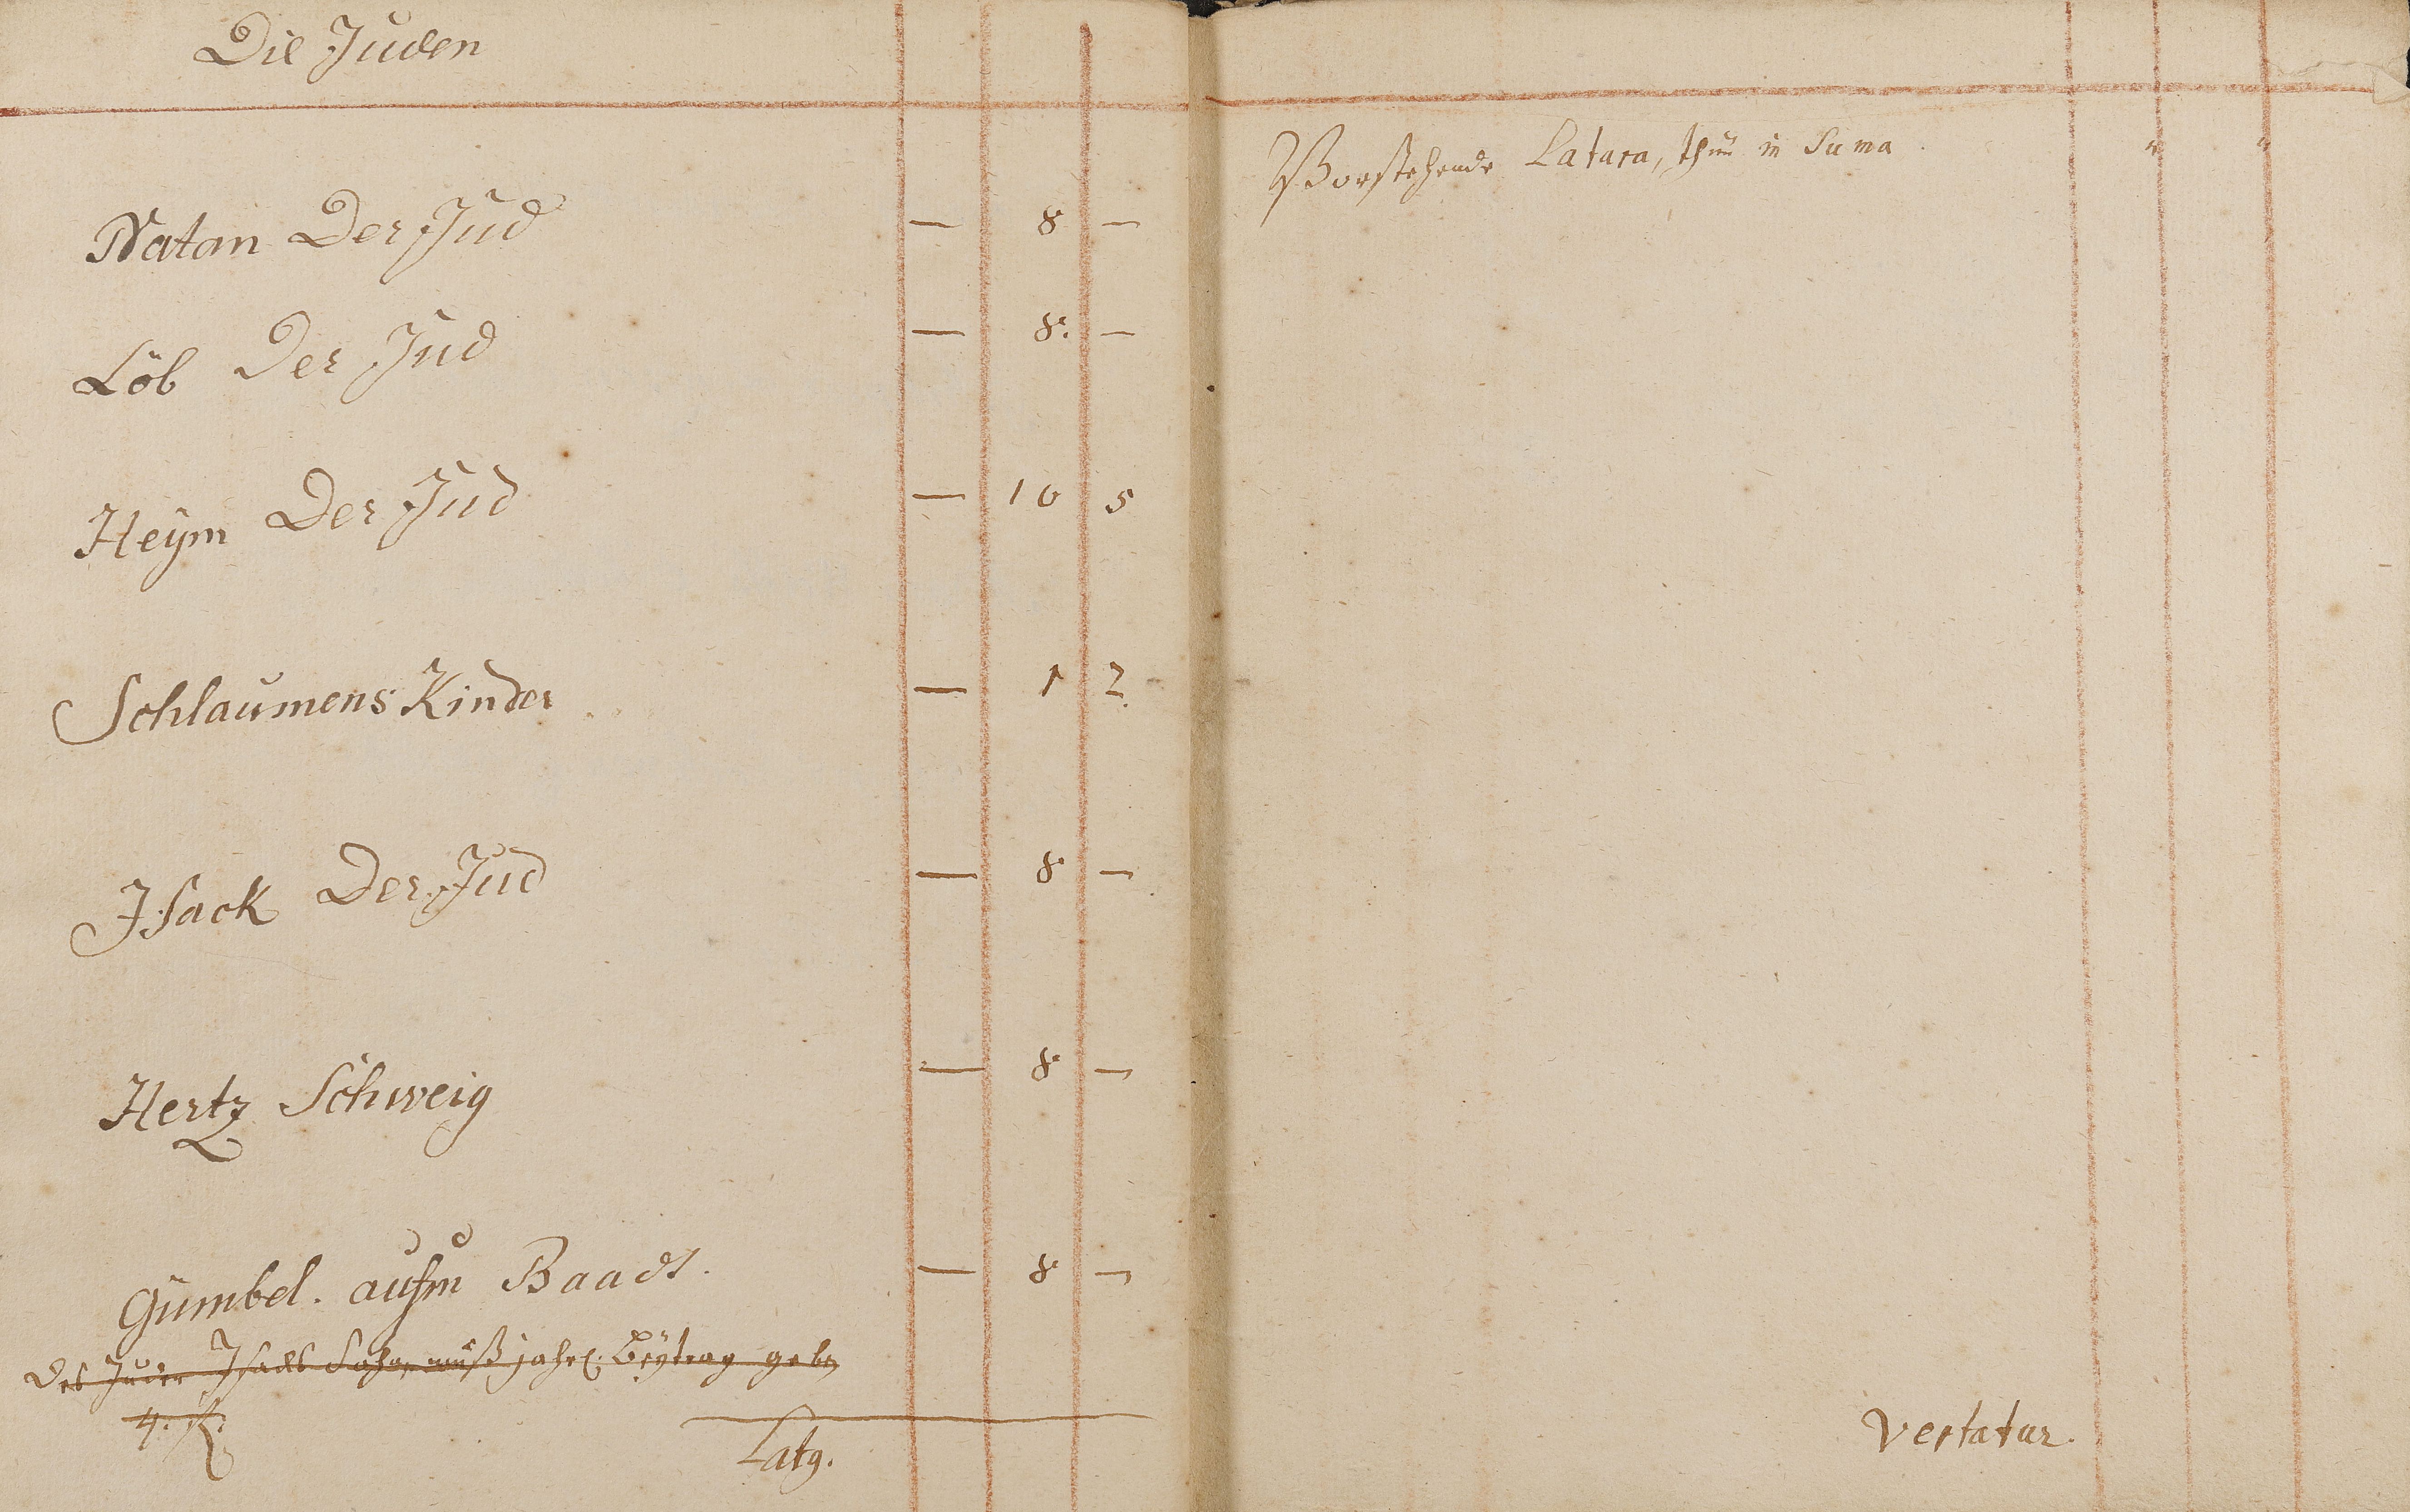 Die Juden
Natan Der Jud — 8 —
Löb Der Jud — 8. —
Heÿm Der Jud — 10 5
Schlaumens Kinder — 1 2.
Isack Der Jud — 8 —
Hertz Schweig — 8 —
Gümbel. aufm Baads. — 8 —
Des Juden Isacks Sohn muß jahrl. Beÿtrag geben
4. fl.
Latg.
Vorstehende Latara, thun in Suma.
Vertatur.